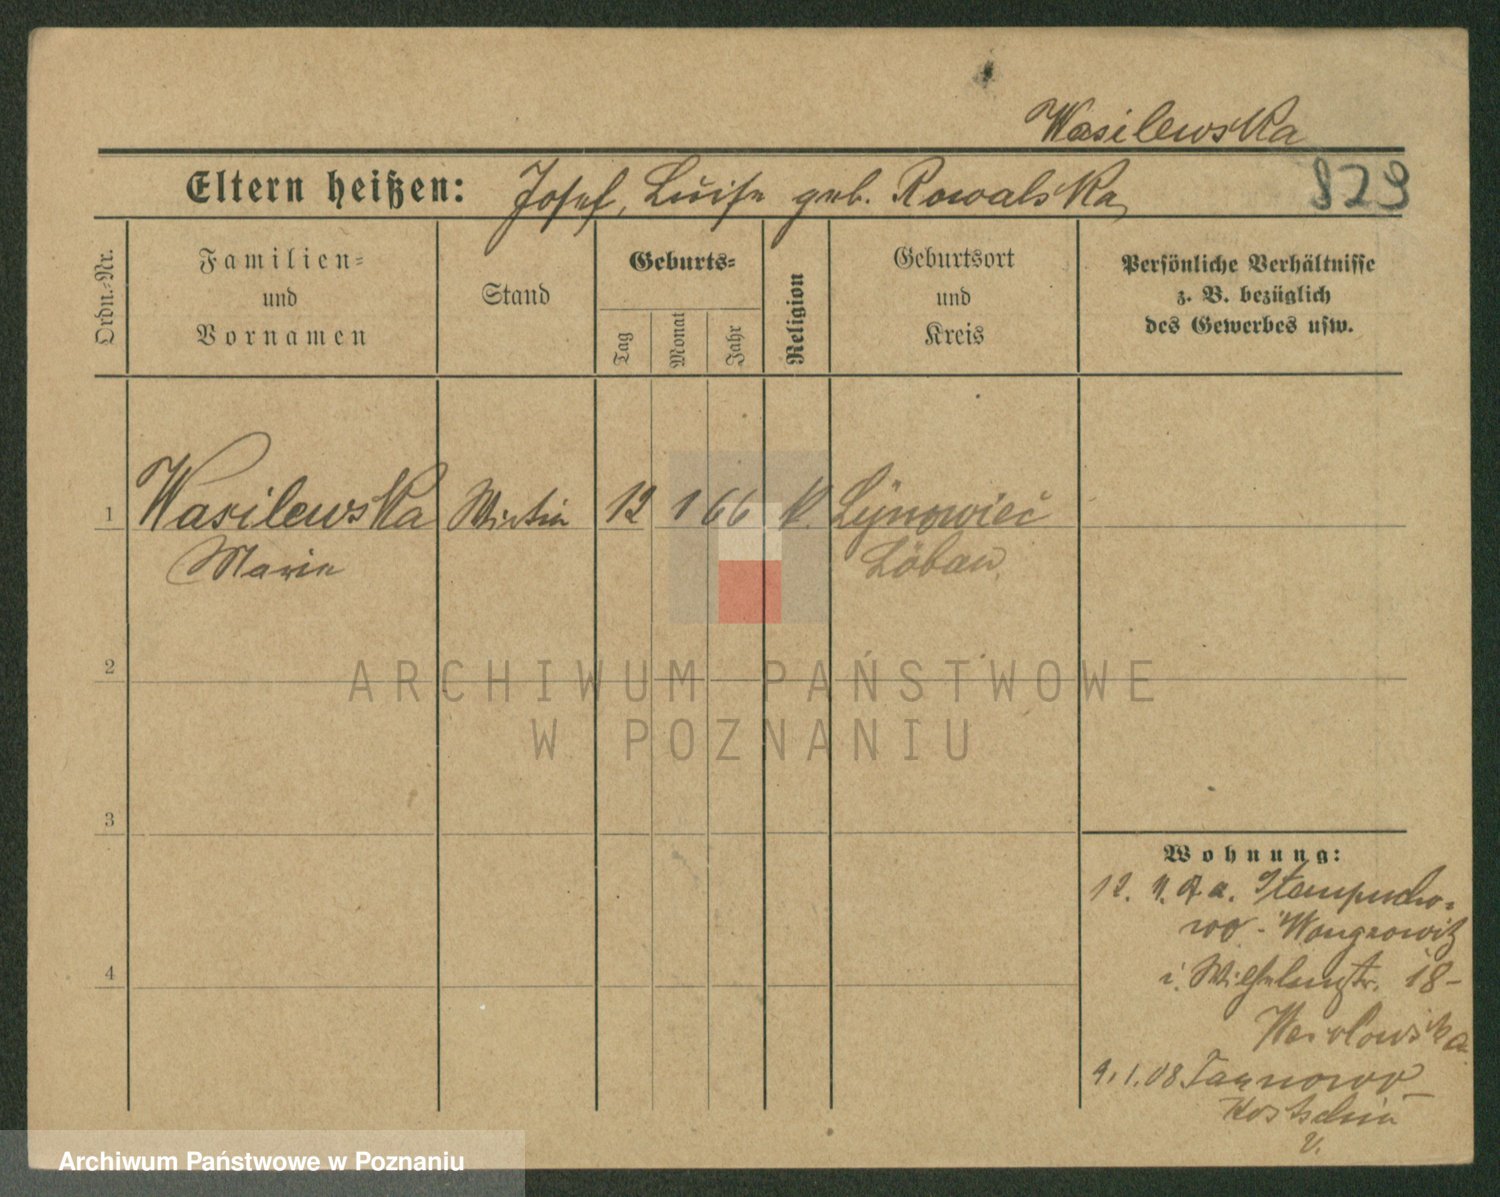 Wasilewska
Eltern heißen: Josef, Luise geb. Kowalska
829
Ordn.-Nr.
Familien-
und
Vornamen
Stand
Geburts-
Tag
Monat
Jahr
Religion
Geburtsort
und
Kreis
Persönliche Verhältnisse
z. B. bezüglich
des Gewerbes usw.
1 Wasilewska Wirtin 12 1 66 k. Lynowiec
Marie Löbau
2
ARCHIWUM PAŃSTWOWE
W POZNANIU
3
Wohnung:
12. Stempucho-
wo - Wongrowitz
i. Wilhelmstr. 18-
4
9.1.08 Tarnowo
Kostschin
v.
Archiwum Państwowe w Poznaniu